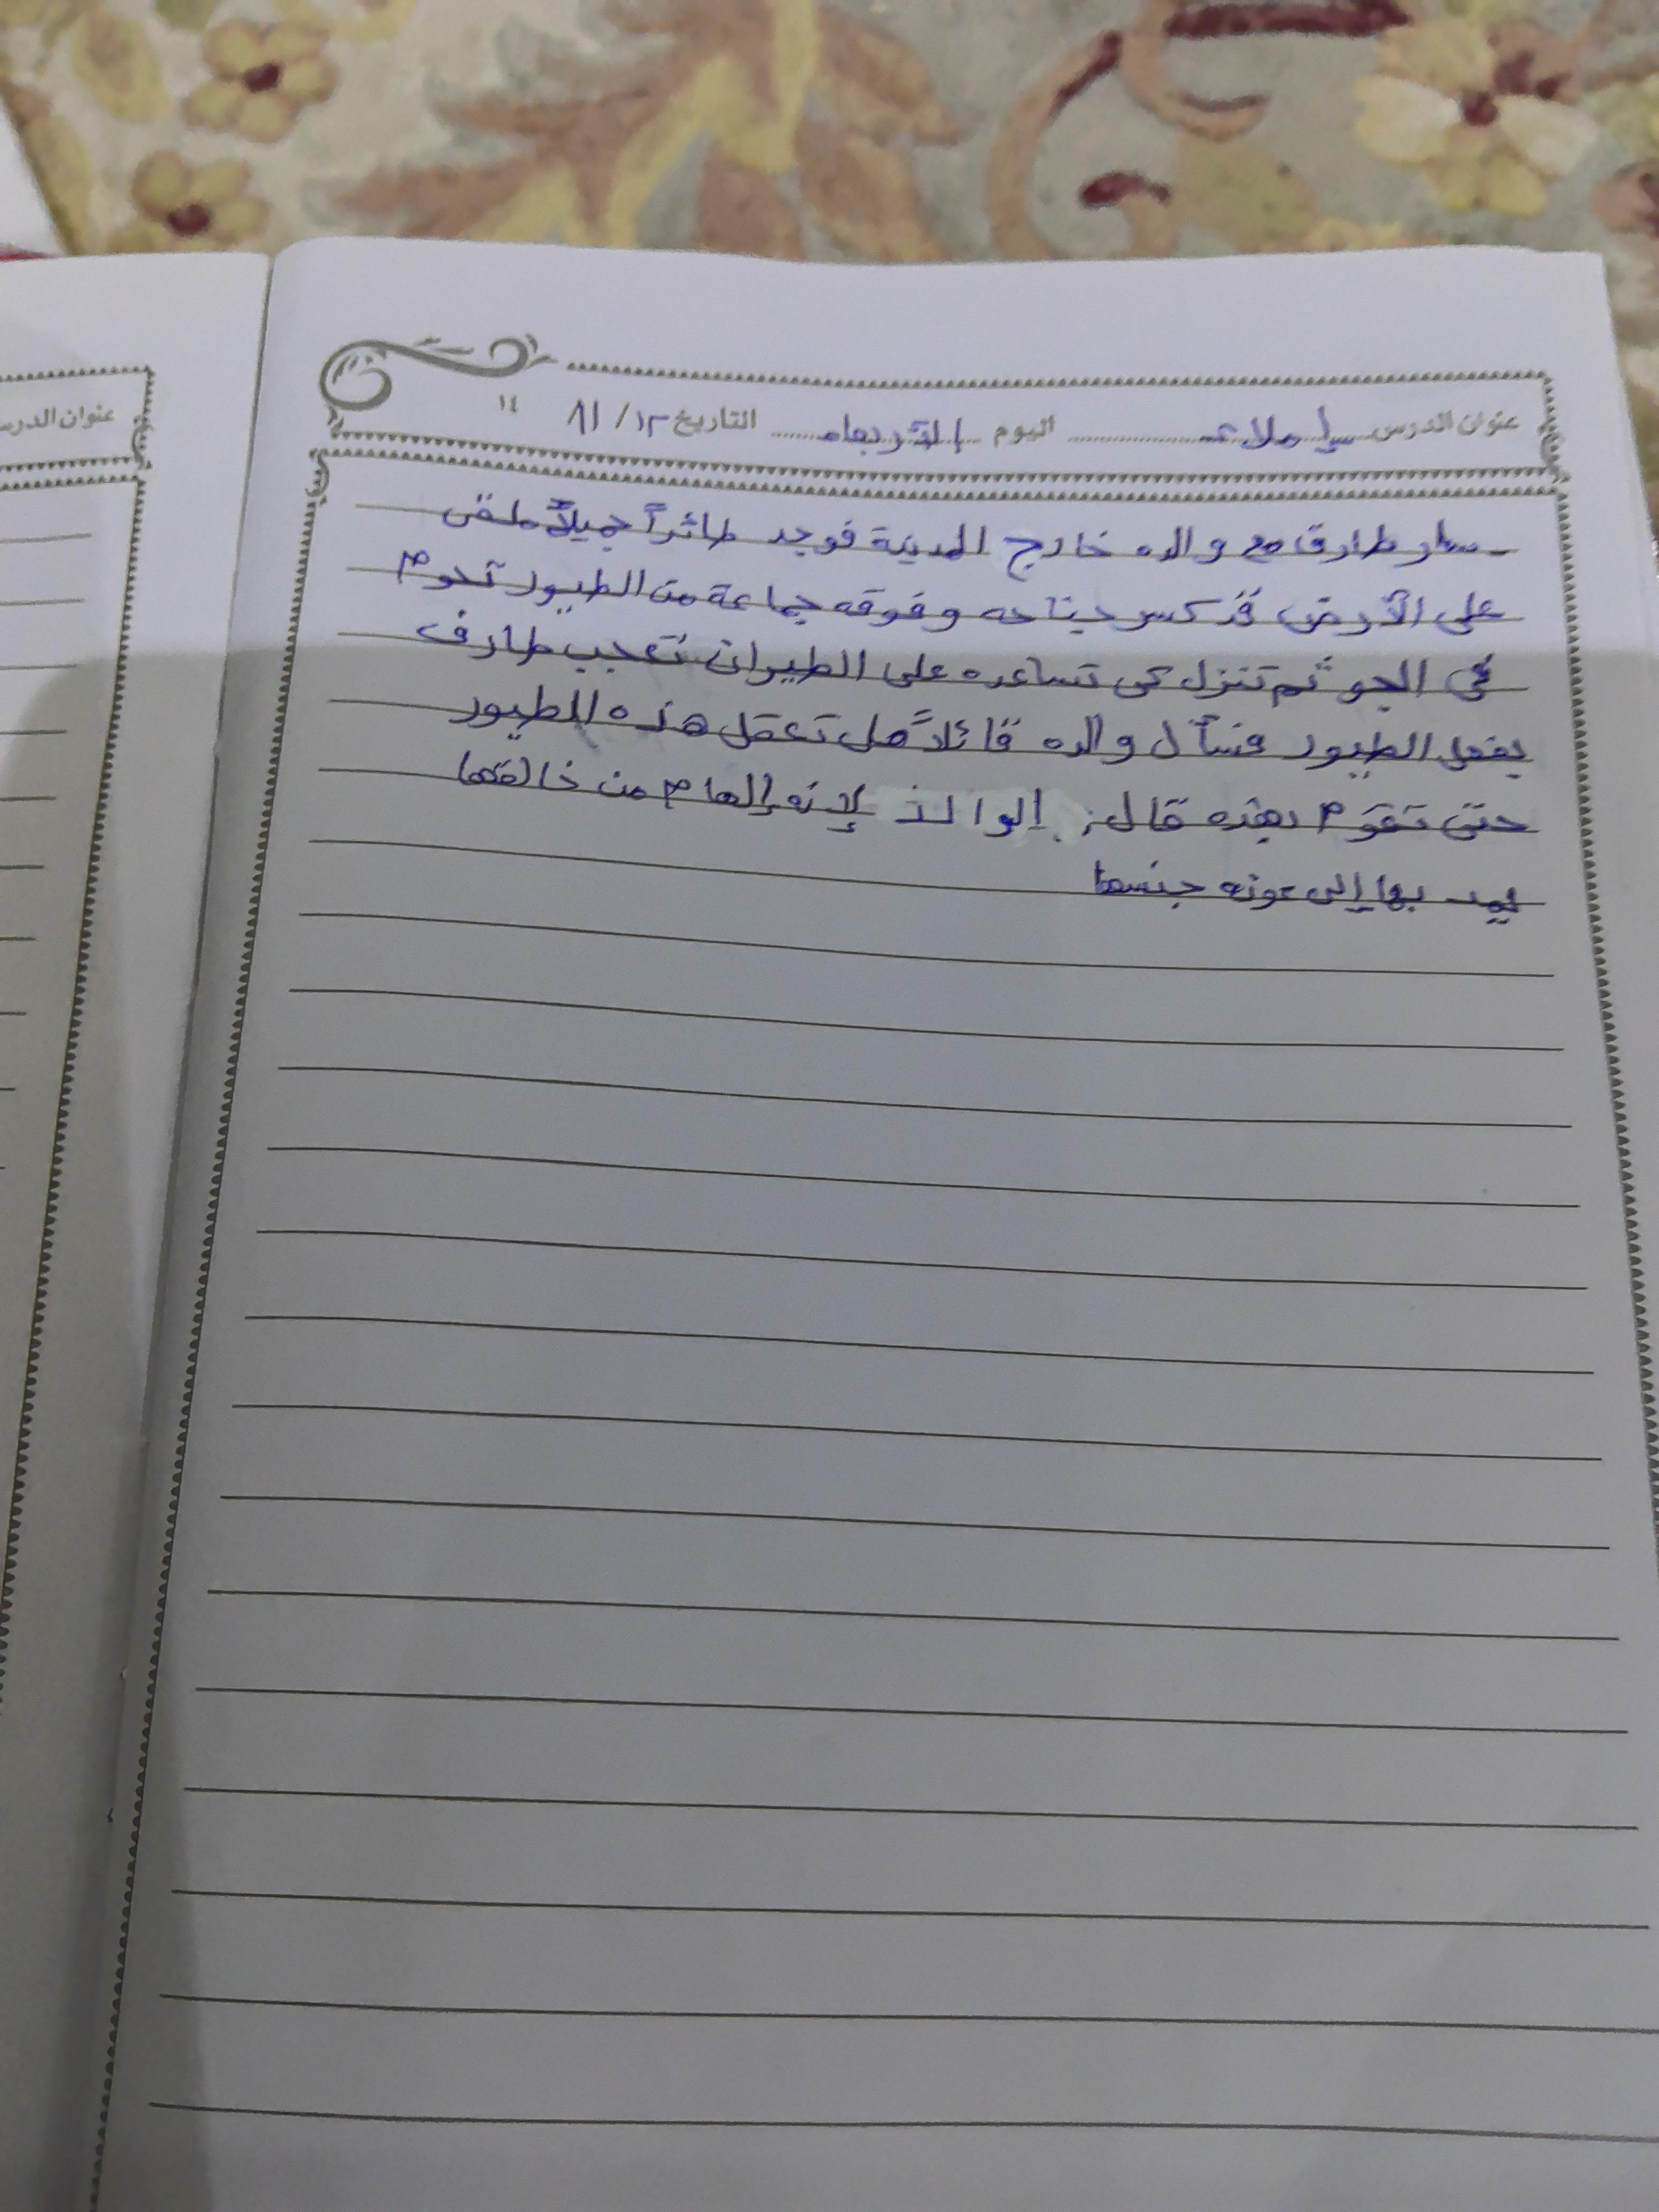 عنوان الدرس إملاء اليوم الأربعاء التاريخ ١٢/ ٨١ ١٤
سار طارق مع والده خارج المدينة فوجد طائراً جميلاً ملقى
على الأرض قد كسر جناحه وفوقه جماعة من الطيور تحوم
في الجو ثم تنزل كي تساعده على الطيران تعجب طارق
بفعل الطيور فسأل والده قائلاً هل تعقل هذه الطيور
حتى تقوم بهذه قال: الوالد لإنه إلهام من خالقها
بها إلى عونه جنسها
عنوان الدرس